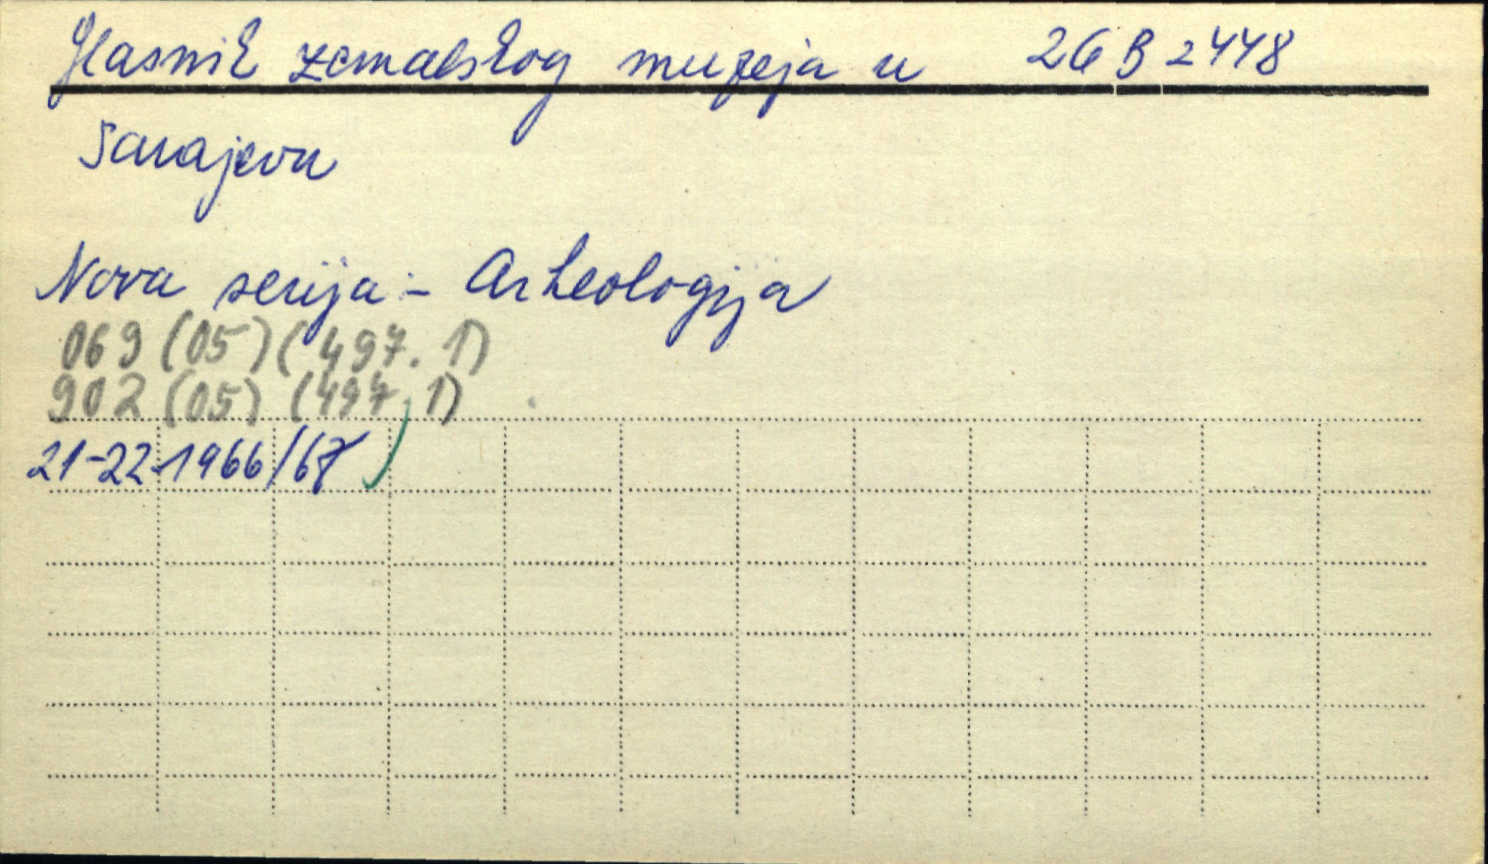 Glasnik zemalskog muzeja u 26 B 2448
Sarajevu
Nova serija - Arheologija
069 (05) (497.1)
902 (05) (497.1)
21-22-1966/67